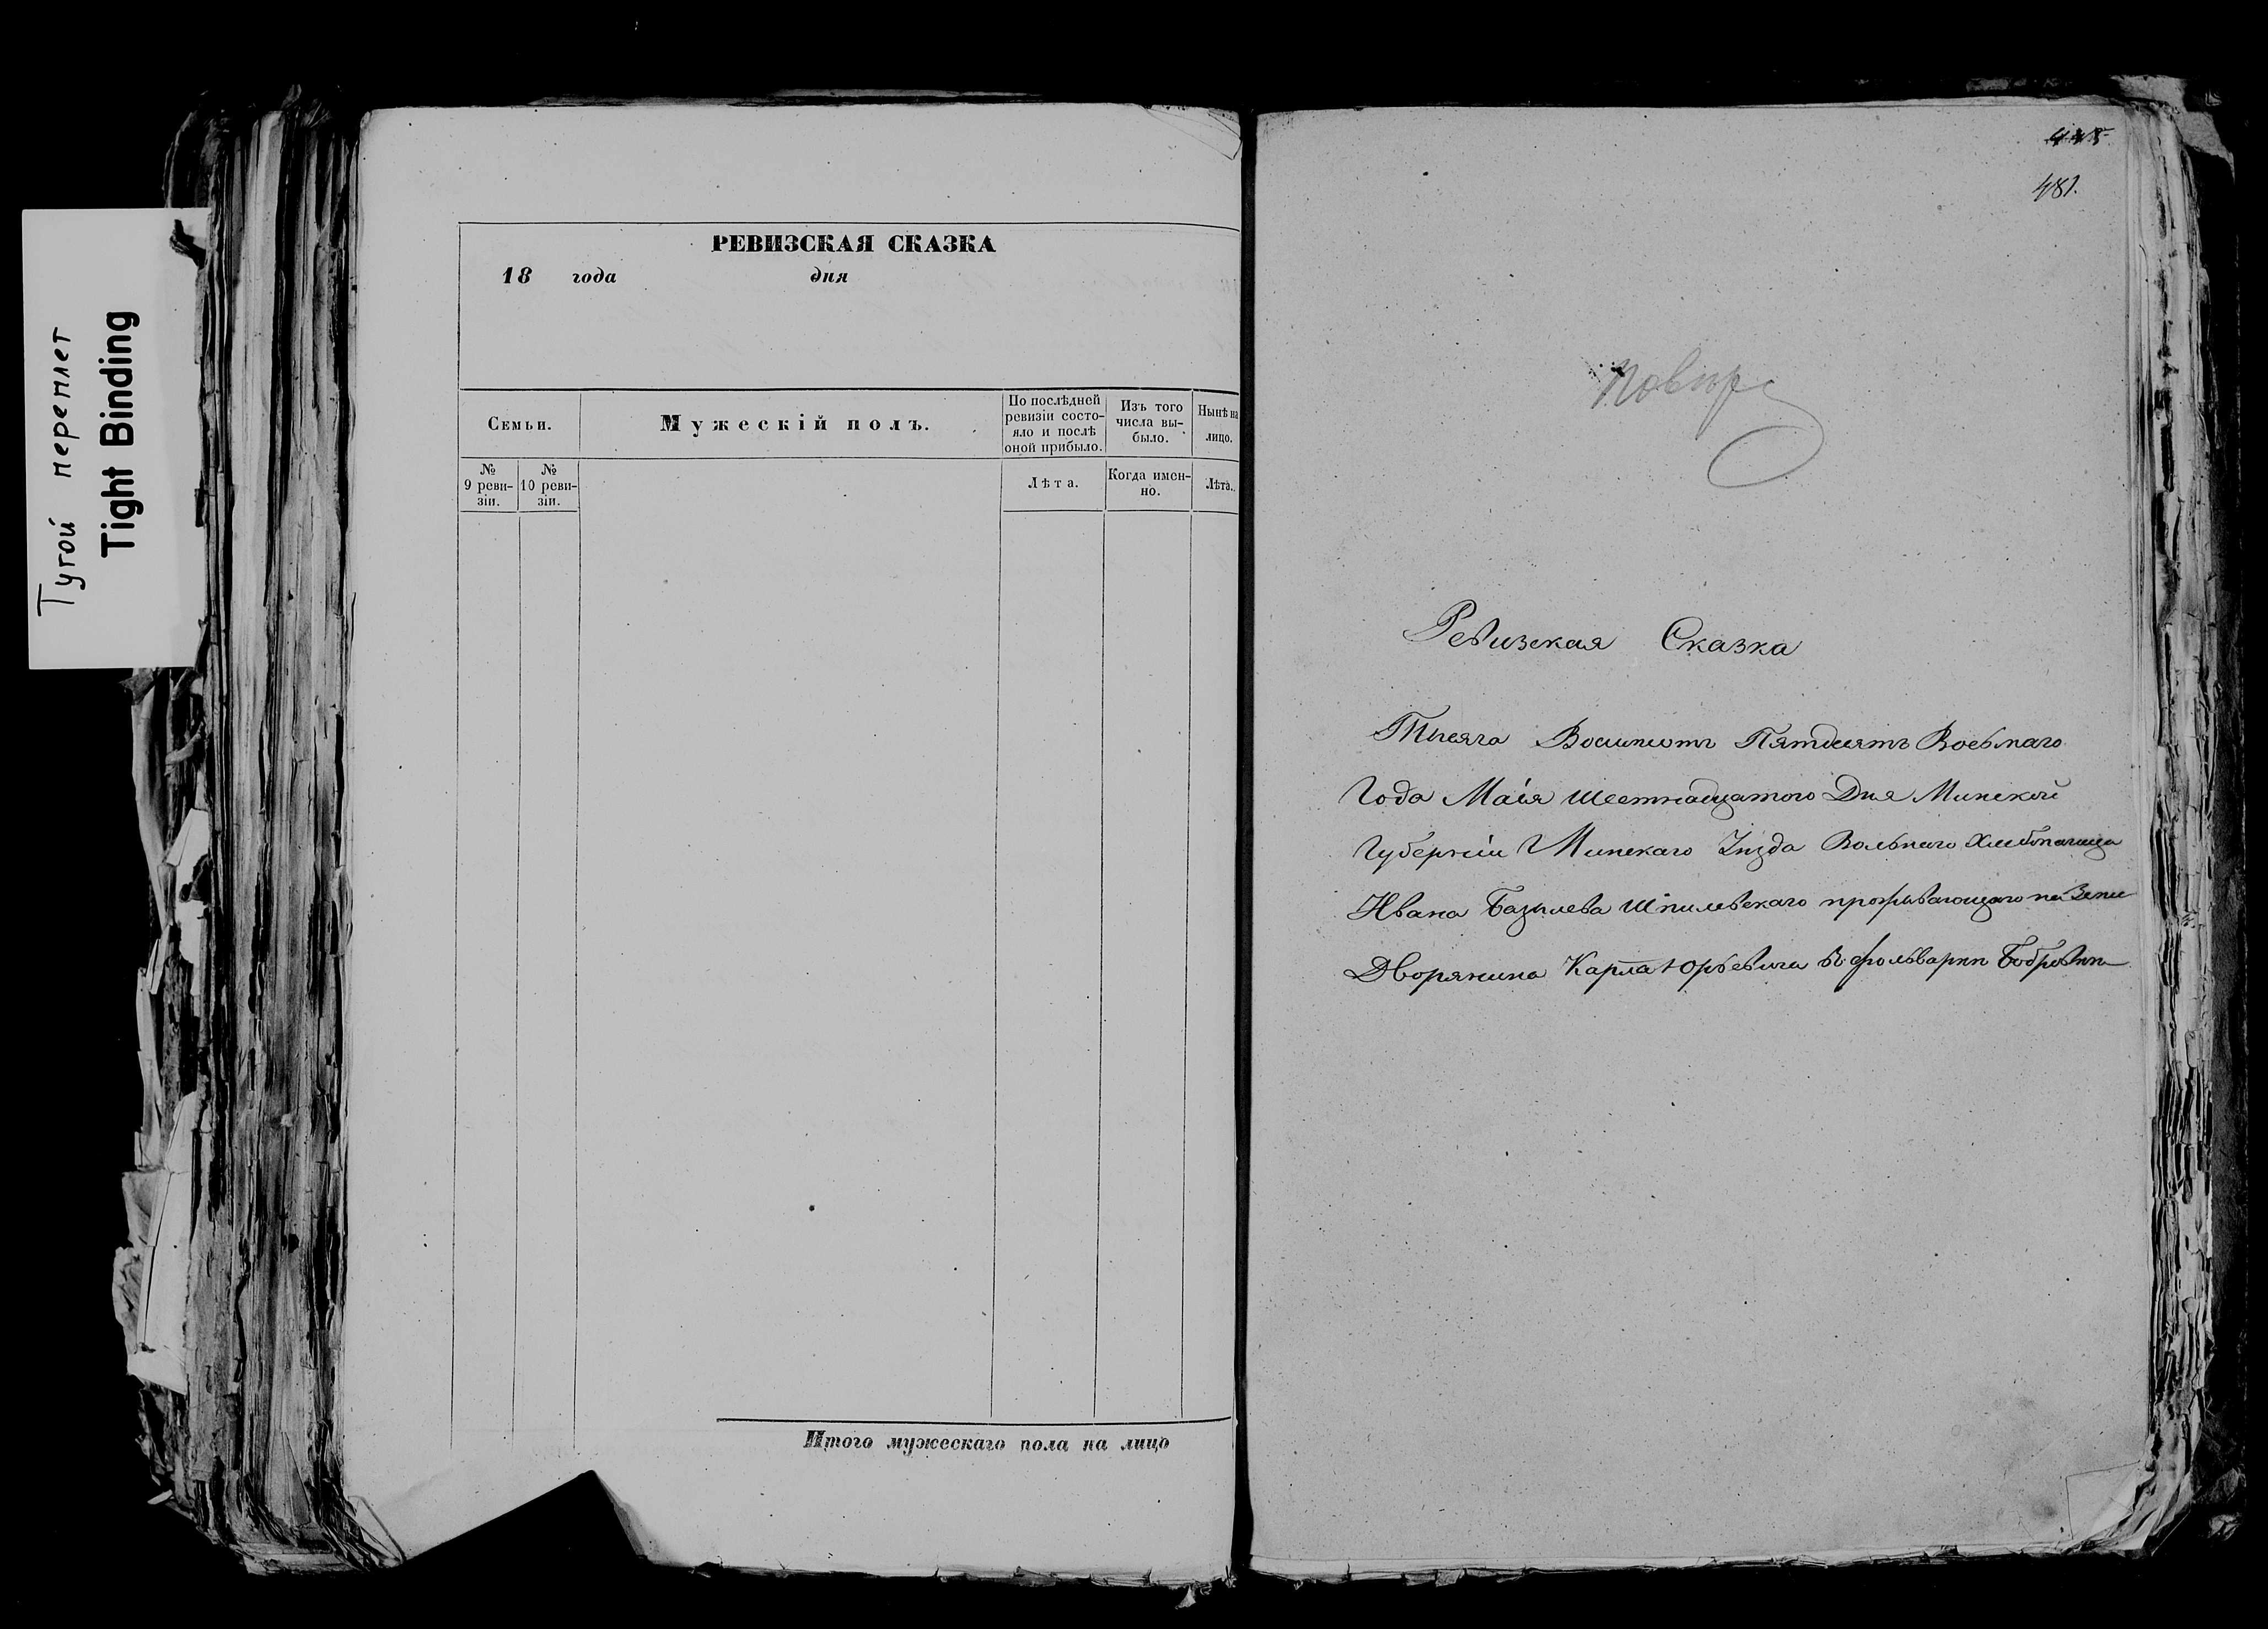 Тугой переплет
Tight Binding
РЕВИЗСКАЯ СКАЗКА
18 года дня
Семьи.
Мужескій полъ.
По послѣдней
ревизіи состо-
яло и послѣ
оной прибыло.
Изъ того
числа вы-
было.
Нынѣ на
лицо.
№
9 реви-
зіи.
№
10 реви-
зіи.
Лѣта.
Когда имен-
но.
Лѣта.
Итого мужескаго пола на лицо
481.
Ревизская Сказка
Тысяча Восимсотъ Пятдесятъ Восьмаго
Года Маія Шестнадцатого Дня Минской
Губерніи Минскаго Уѣзда Вольнаго Хлебопашца
Ивана Базылева Шпилевскаго проживающаго на Земле
Дворянина Карла Юрьевича въ фольварки